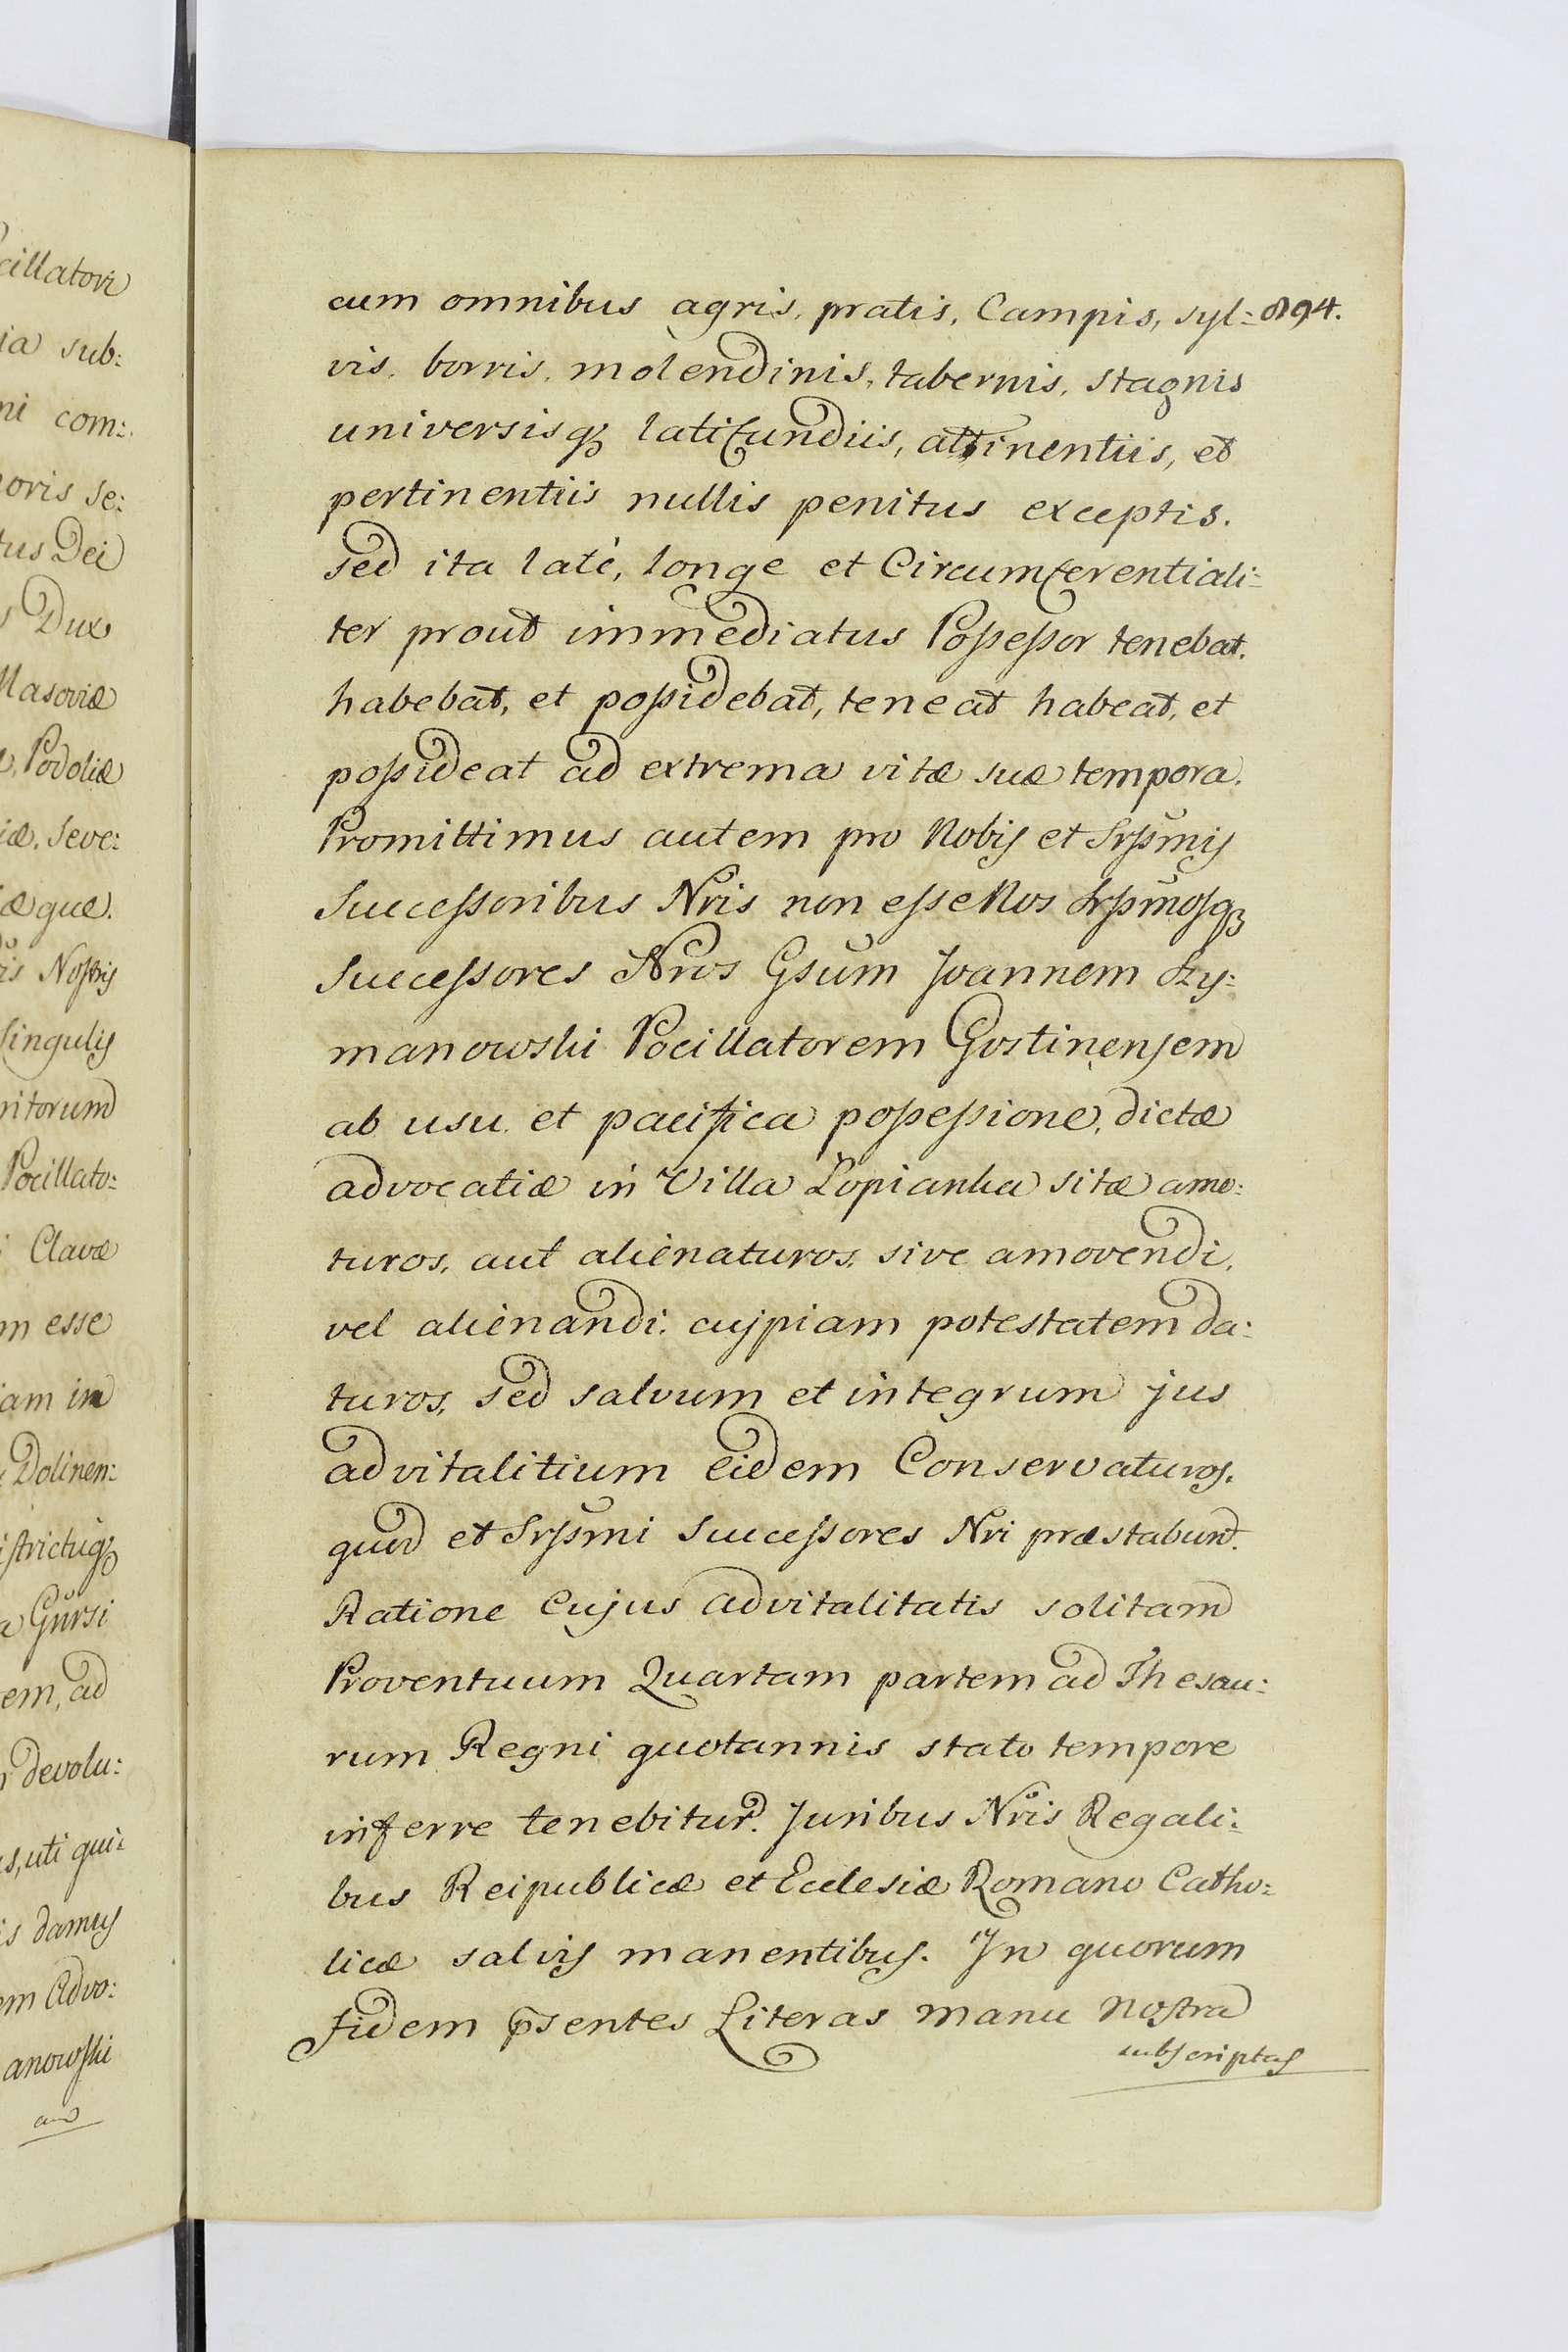 cillatori
ia sub:
ni com:
oris se:
tus Dei
Dux
Masoviæ
Podoliæ
iæ, Seve:
æquæ.
is Nostris
Singulis
nitorum
Pocillato:
Clavæ
m esse
iam in
Dolinen:
istrictuq3
Gnŭrsi
em, ad
devolu:
s, uti qui:
is damus
em Advo:
anowski
cum omnibus agris, pratis, Campis, syl: 894.
vis, borris, molendinis, tabernis, stagnis
universisq3 latifundiis, attinentiis, et
pertinentiis nullis penitus exceptis.
sed ita latè, longe et Circumferentiali:
ter prout immediatus Possessor tenebat,
habebat, et possidebat, teneat habeat, et
possideat ad extrema vitæ suæ tempora.
Promittimus autem pro Nobis et Srssmis
Successoribus Nris non esse Nos Srssmosq3
Successores Nros Gsum Joannem Szy:
manowski Pocillatorem Gostinensem
ab usu et pacifica possessione, dictæ
advocatiæ in Villa Lopianka sitæ amo:
turos, aut alienaturos, sive amovendi,
vel alienandi, cuipiam potestatem da:
turos, sed salvum et integrum jus
advitalitium eidem Conservaturos,
quod et Srssmi Successores Nri præstabunt.
Ratione Cujus advitalitatis solitam
Proventuum Quartam partem ad Thesau:
rum Regni quotannis stato tempore
inferre tenebitur. Juribus Nris Regali:
bus Reipublicæ et Ecclesiæ Romano Catho:
licæ salvis manentibus. Jn quorum
fidem p̄sentes Literas manu nostra
subscriptas